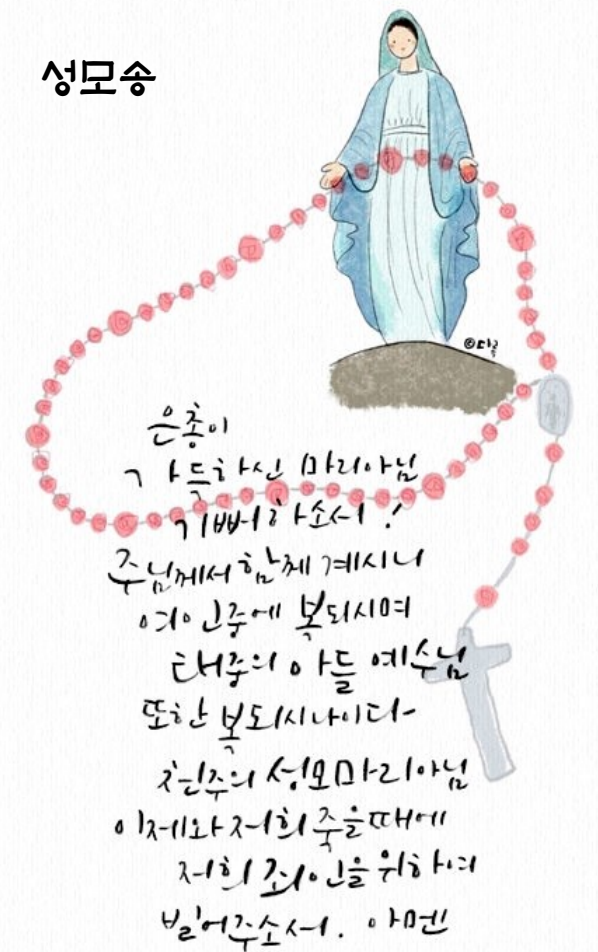 성모송
©다롱
은총이
가득하신 마리아님
기뻐하소서!
주님께서 함께 계시니
여인중에 복되시며
태중의 아들 예수님
또한 복되시나이다-
천주의 성모마리아님
이제와 저희 죽을때에
저희 죄인을 위하여
빌어주소서. 아멘